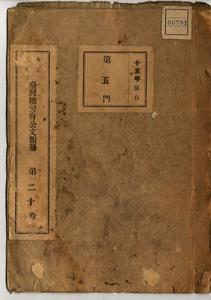 06791
十五年保存
第五門
臺灣總督府公文類纂 第二十卷